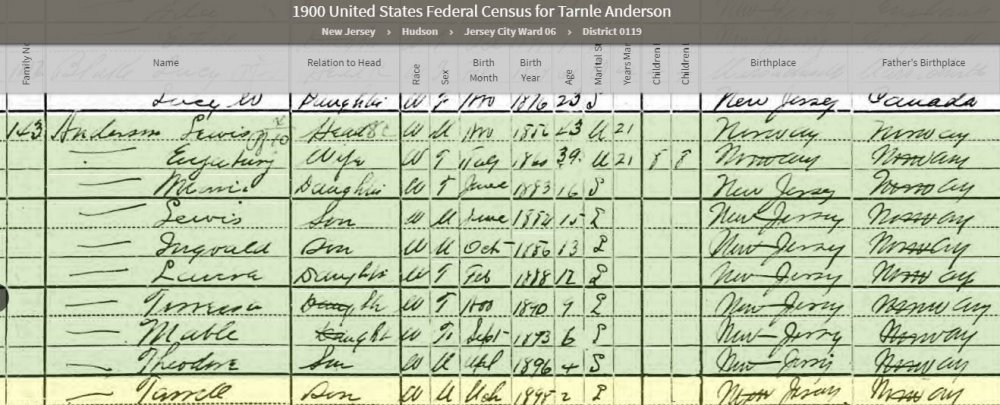 1900 United States Federal Census for Tarnle Anderson
New Jersey › Hudson › Jersey City Ward 06 › District 0119
Family No Name Relation to Head Race Sex Birth Month Birth Year Age Marital St Years Mar Children Children Birthplace Father's Birthplace
Lucy W Daughter W F Nov 1876 23 S New Jersey Canada
143 Anderson Lewis Head W M Nov 23 M 21 Norway Norway
— Wife W F July 39 M 21 8 8 Norway Norway
— Daughter W F June 1883 16 S New Jersey Norway
— Lewis Son W M June 1884 15 S New Jersey Norway
— Ingvald Son W M Oct 1886 13 S New Jersey Norway
— Laura Daughter W F Feb 1888 12 S New Jersey Norway
— Daugh W F Nov 1890 9 S New Jersey Norway
— Mable Daught W F Sept 1893 6 S New Jersey Norway
— Theodore Son W M Apl 1896 4 S New Jersey Norway
— Son W M 2 S New Jersey Norway